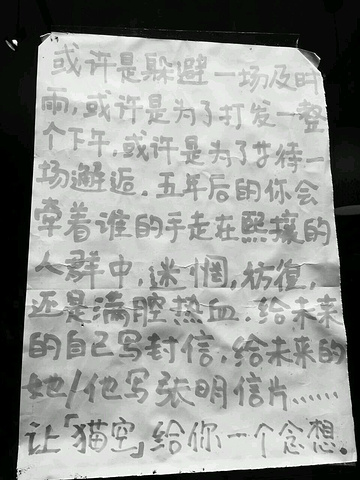 或许是躲避一场及时
雨,或许是为了打发一整
个下午,或许是为了等待一
场邂逅.五年后的你会
牵着谁的手走在熙攘的
人群中,迷惘,彷徨,
还是满腔热血.给未来
的自己写封信,给未来的
她/他写张明信片……
让「猫空」给你一个念想.